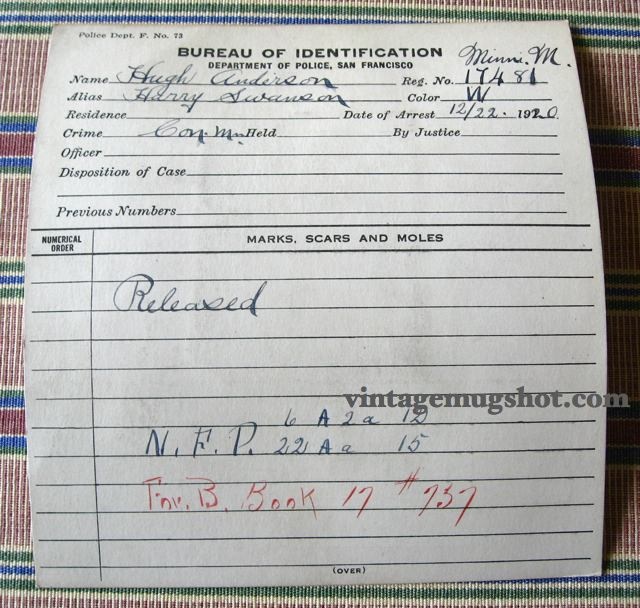 Police Dept. F. No. 73
BUREAU OF IDENTIFICATION Minn. M.
DEPARTMENT OF POLICE, SAN FRANCISCO
Name Hugh Anderson Reg. No. 17481
Alias Harry Swanson Color W
Residence Date of Arrest 12/22. 1920.
Crime Con. M. Held By Justice
Officer
Disposition of Case
Previous Numbers
NUMERICAL ORDER MARKS, SCARS AND MOLES
Released
vintagemugshot.com
6 A 2 a 12
N. F. P. 22 A a 15
B. Book 17 # 737
(OVER)